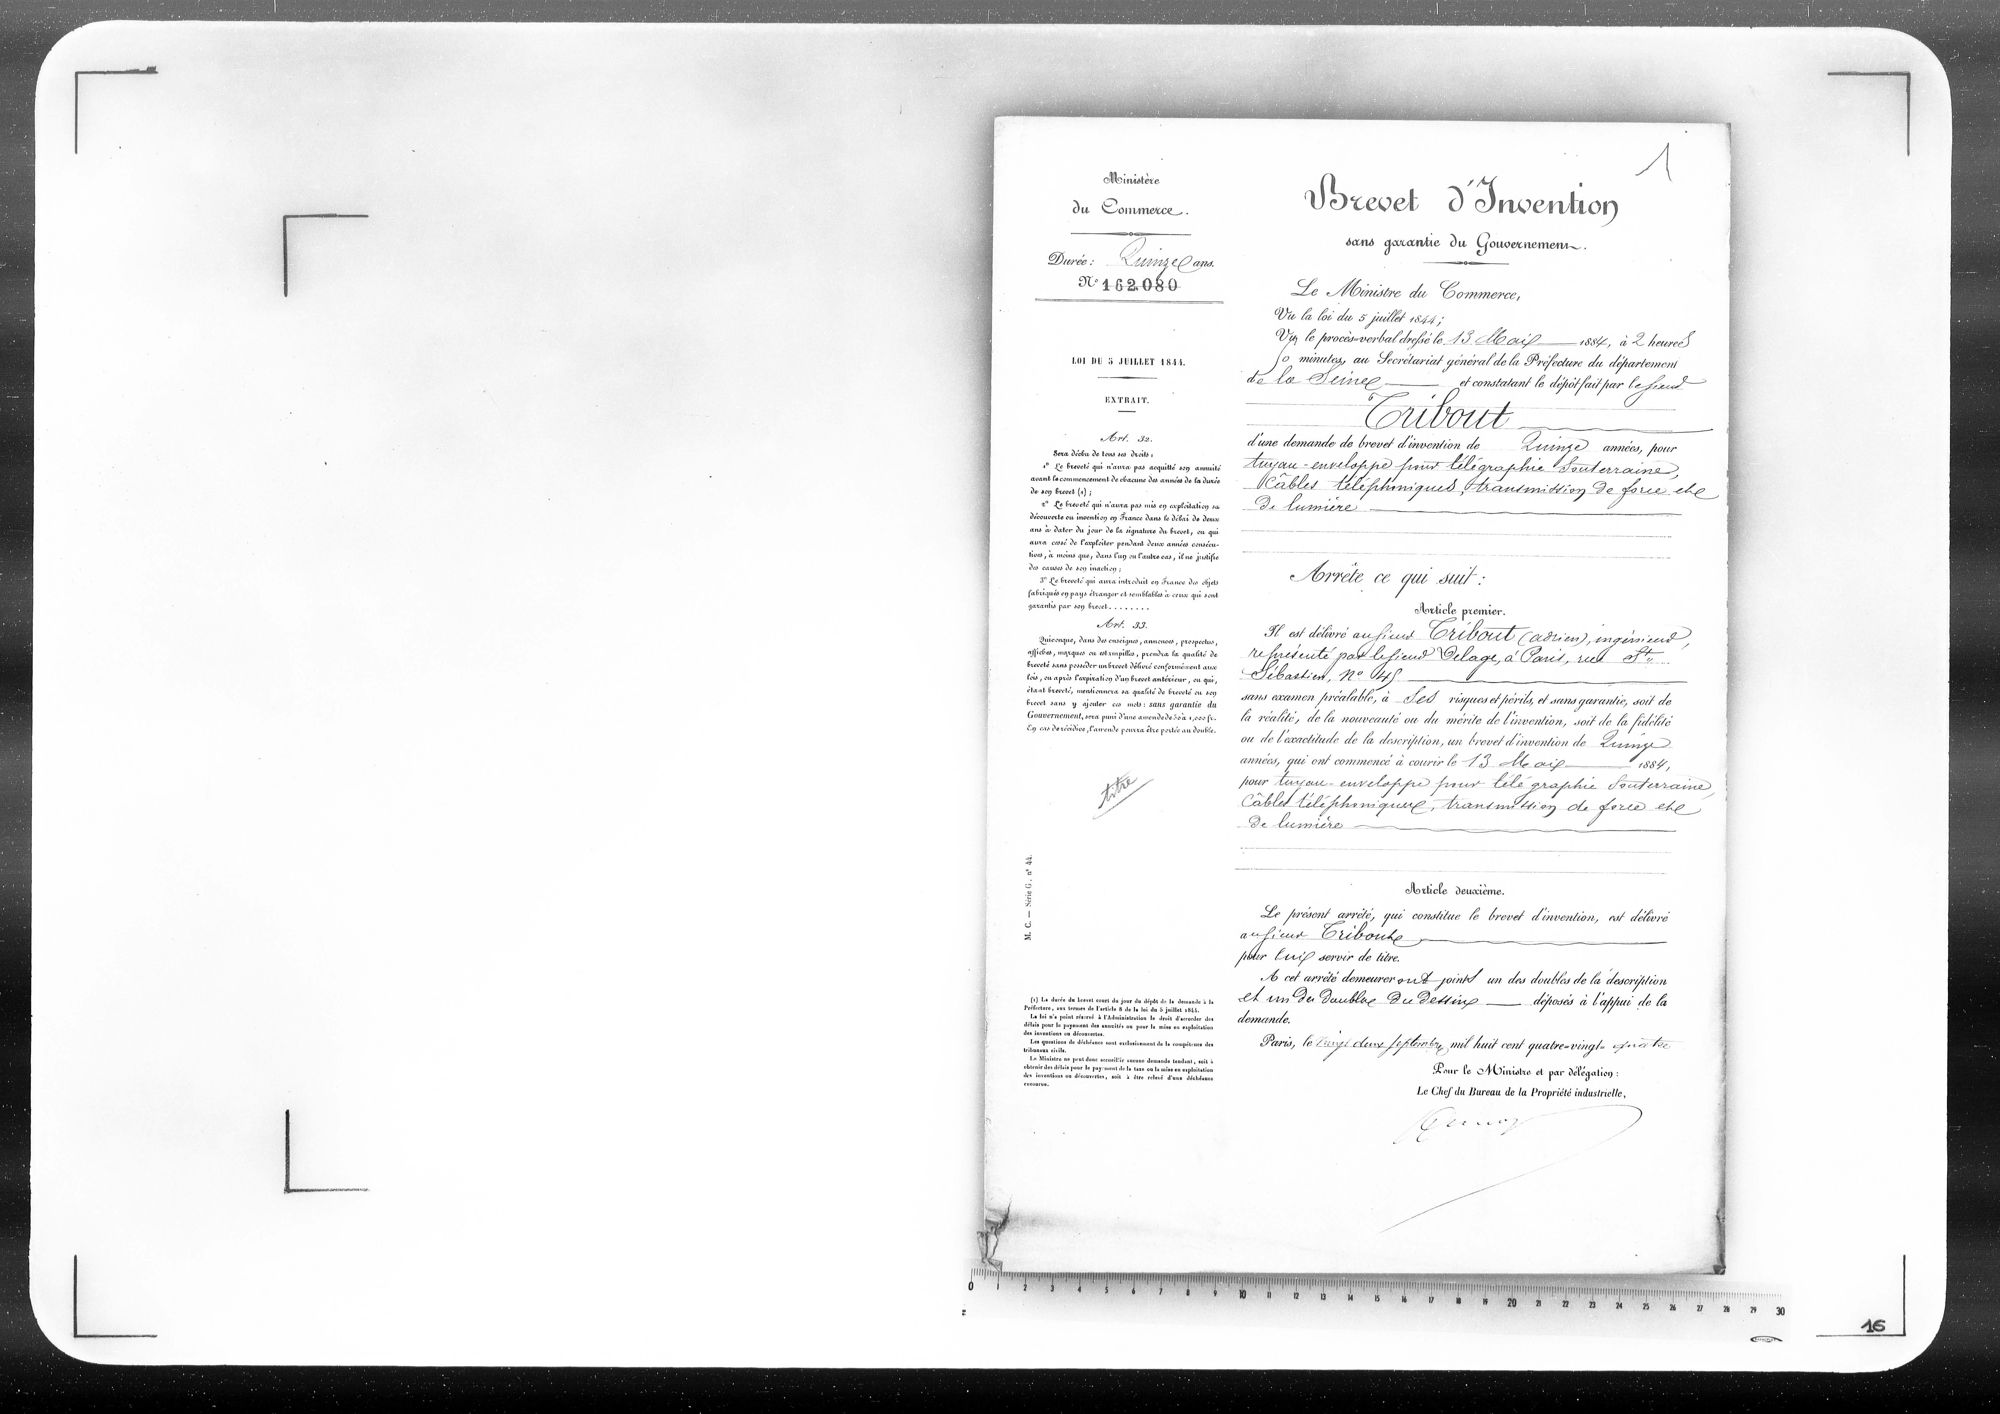 1
Ministère
du Commerce.
Durée: Quinze ans.
N° 162.080
LOI DU 5 JUILLET 1844.
EXTRAIT.
Art. 32.
Sera déchu de tous ses droits:
1° Le breveté qui n'aura pas acquitté son annuité
avant le commencement de chacune des années de la durée
de son brevet (1);
2° Le breveté qui n'aura pas mis en exploitation sa
découverte ou invention en France dans le délai de deux
ans à dater du jour de la signature du brevet, ou qui
aura cessé de l'exploiter pendant deux années consécu-
tives, à moins que, dans l'un ou l'autre cas, il ne justifie
des causes de son inaction;
3° Le breveté qui aura introduit en France des objets
fabriqués en pays étranger et semblables à ceux qui sont
garantis par son brevet........
Art. 33.
Quiconque, dans des enseignes, annonces, prospectus,
affiches, marques ou estampilles, prendra la qualité de
breveté sans posséder un brevet délivré conformément aux
lois, ou après l'expiration d'un brevet antérieur, ou qui,
étant breveté, mentionnera sa qualité de breveté ou son
brevet sans y ajouter ces mots: sans garantie du
Gouvernement, sera puni d'une amende de 50 à 1,000 fr.
En cas de récidive, l'amende pourra être portée au double.
titre
M. C. — Série G, n° 44.
(1) La durée du brevet court du jour du dépôt de la demande à la
Préfecture, aux termes de l'article 8 de la loi du 5 juillet 1844.
La loi n'a point réservé à l'Administration le droit d'accorder des
délais pour le payement des annuités ou pour la mise en exploitation
des inventions ou découvertes.
Les questions de déchéance sont exclusivement de la compétence des
tribunaux civils.
Le Ministre ne peut donc accueillir aucune demande tendant, soit à
obtenir des délais pour le payement de la taxe ou la mise en exploitation
des inventions ou découvertes, soit à être relevé d'une déchéance
encourue.
Brevet d'Invention
sans garantie du Gouvernement.
Le Ministre du Commerce,
Vu la loi du 5 juillet 1844;
Vu le procès-verbal dressé le 13 Mai 1884, à 2 heures
minutes, au Secrétariat général de la Préfecture du département
de la Seine et constatant le dépôt fait par le sieur
Tribout
d'une demande de brevet d'invention de Quinze années, pour
tuyau-enveloppe pour télégraphie souterraine,
Câbles téléphoniques, transmission de force et
de lumière
Arrête ce qui suit:
Article premier.
Il est délivré au sieur Tribout (adrien), ingénieur,
représenté par le sieur Delage, à Paris, rue St
Sébastien, N° 45
sans examen préalable, à ses risques et périls, et sans garantie, soit de
la réalité, de la nouveauté ou du mérite de l'invention, soit de la fidélité
ou de l'exactitude de la description, un brevet d'invention de Quinze
années, qui ont commencé à courir le 13 Mai 1884,
pour tuyau-enveloppe pour télégraphie souterraine,
Câbles téléphoniques, transmission de force et
de lumière
Article deuxième.
Le présent arrêté, qui constitue le brevet d'invention, est délivré
au sieur Tribout
pour lui servir de titre.
A cet arrêté demeureront joints un des doubles de la description
et un des doubles du dessin déposés à l'appui de la
demande.
Paris, le vingt deux septembre mil huit cent quatre-vingt-quatre
Pour le Ministre et par délégation:
Le Chef du Bureau de la Propriété industrielle,
0 1 2 3 4 5 6 7 8 9 10 11 12 13 14 15 16 17 18 19 20 21 22 23 24 25 26 27 28 29 30
16